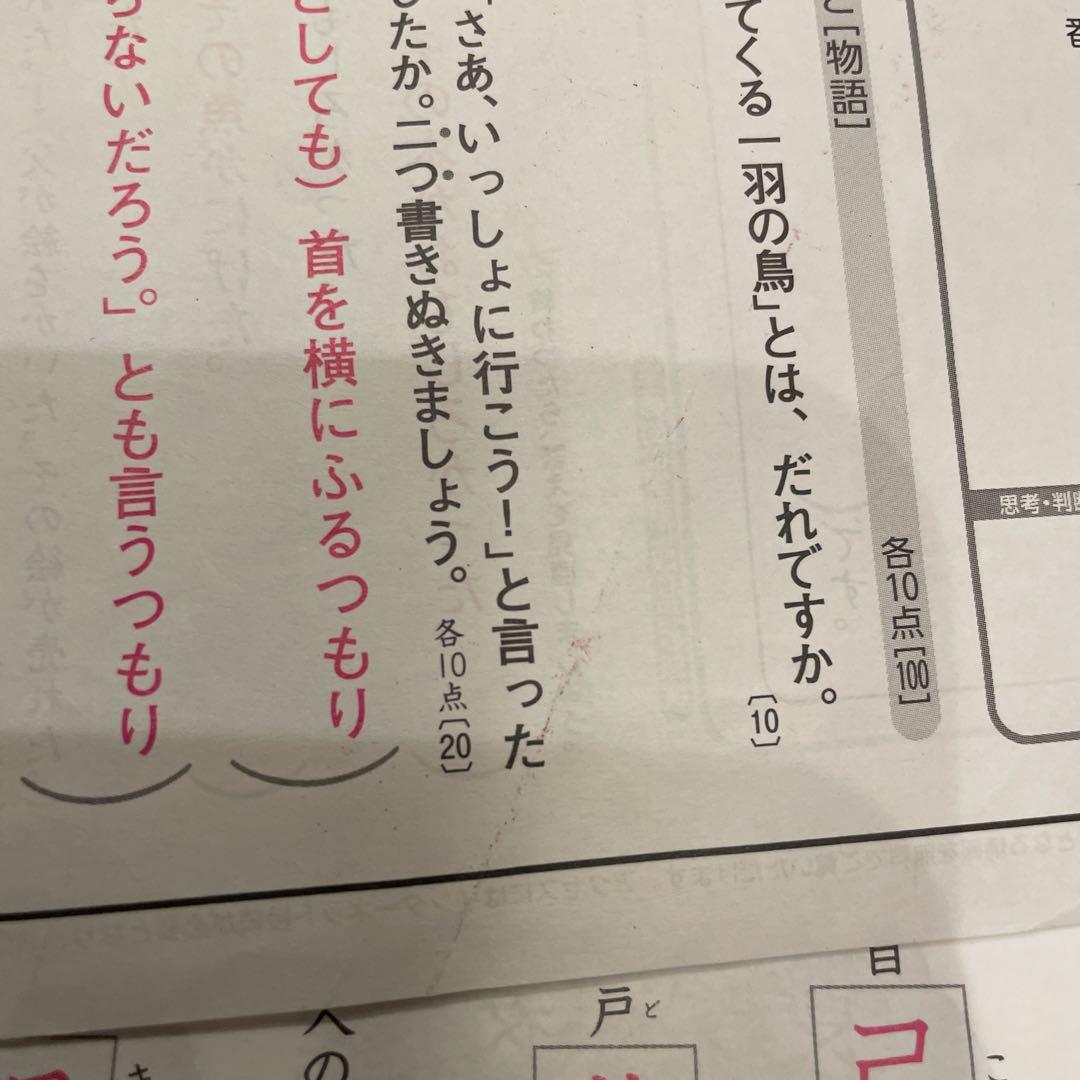 番
思考・判断
と[物語]
各10点[100]
てくる一羽の鳥」とは、だれですか。
[10]
「さあ、いっしょに行こう！」と言った
したか。二つ書きぬきましょう。
各10点[20]
としても）首を横にふるつもり
らないだろう。」とも言うつもり
日
こ
戸
と
への
キ